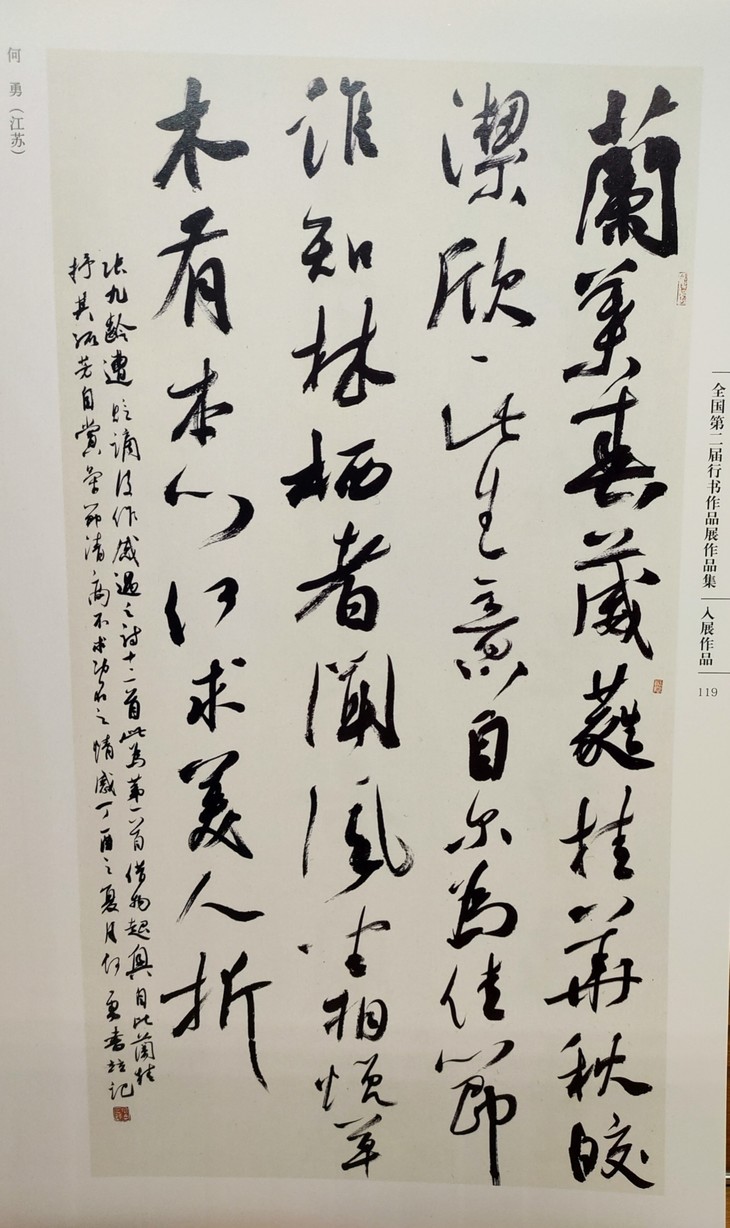 蘭葉春葳蕤桂華秋皎
潔欣〻此生意自尔為佳節
誰知林栖者聞風坐相悅草
木有本心何求美人折
張九齡遭貶謫後作感遇之詩十二首此為第一首借物起興自比蘭桂
抒其孤芳自賞氣節清高不求功名之情感丁酉之夏月何勇書並記
何 勇（江苏）
全国第二届行书作品展作品集
入展作品
119